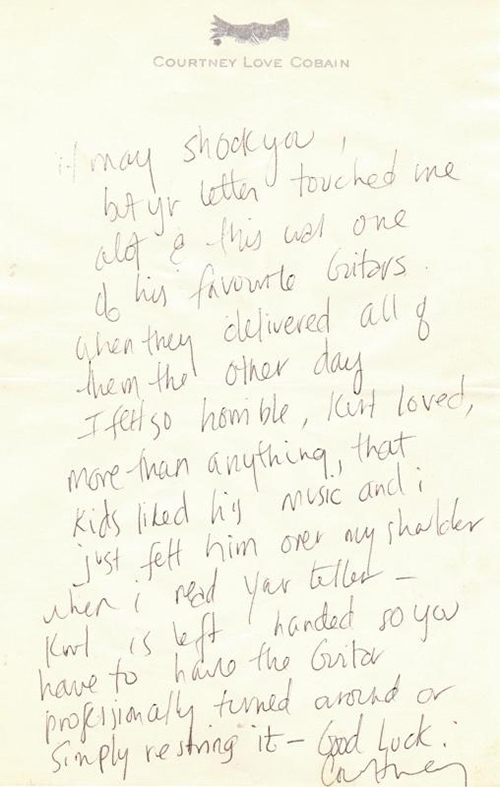 COURTNEY LOVE COBAIN
it may shock you,
but yr letter touched me
alot & this was one
of his favourite Guitars.
when they delivered all of
them the other day
I felt so horrible, Kurt loved,
more than anything, that
kids liked his music and i
just felt him over my shoulder
when i read your letter –
Kurt is left handed so you
have to have the Guitar
professionally turned around or
Simply restring it – Good Luck.
Courtney